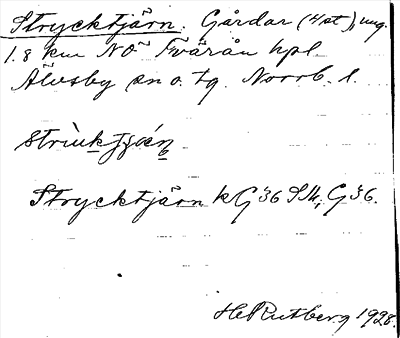 Strycktjärn. Gårdar (4 st), ung.
1.8 km NO Tvärån hpl.
Älvsby sn o. tg. Norrb. l.
Strycktjärn k G36 SW, G36.
H. Rutberg 1928.